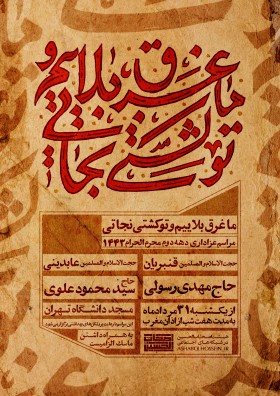 ما غرق بلاییم و
تو کشتی نجاتی
ما غرق بلاییم و تو کشتی نجاتی
مراسم عزاداری دهه دوم محرم الحرام ۱۴۴۳
حجت الاسلام و المسلمین قنبریان
حجت الاسلام و المسلمین عابدینی
حاج مهدی رسولی
حاج سید محمود علوی
از یکشنبه ۳۱ مردادماه
به مدت هفت شب از اذان مغرب
مسجد دانشگاه تهران
به همراه داشتن
ماسک الزامیست